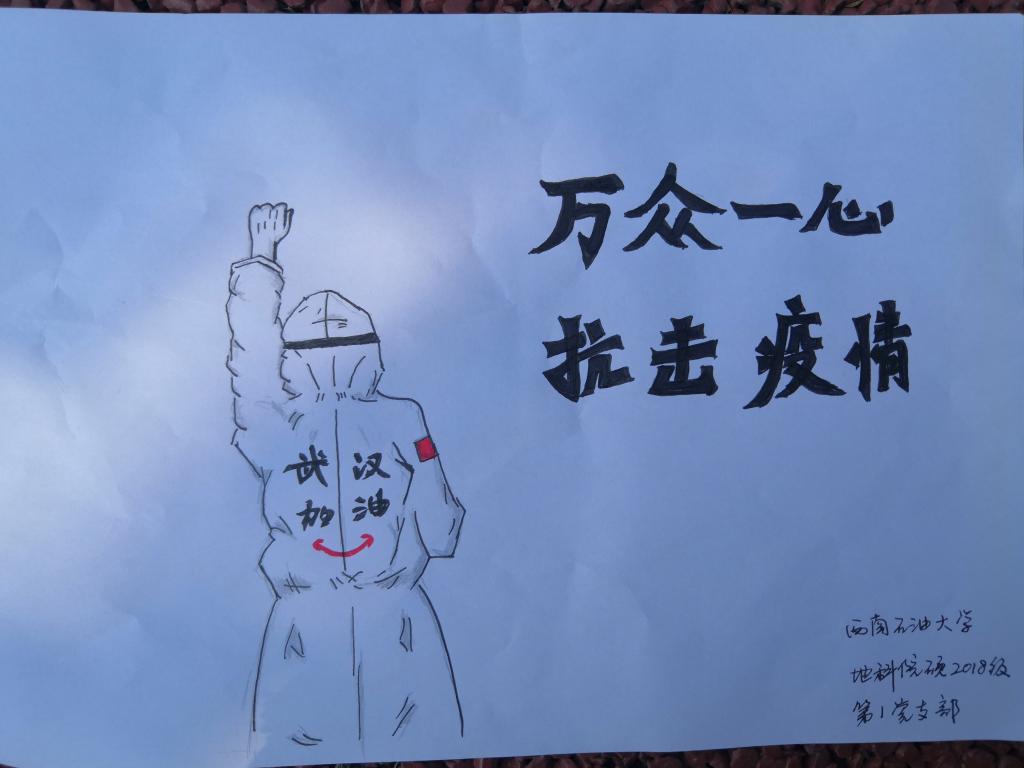 万众一心
抗击疫情
武汉
加油
西南石油大学
地科院硕2018级
第1党支部